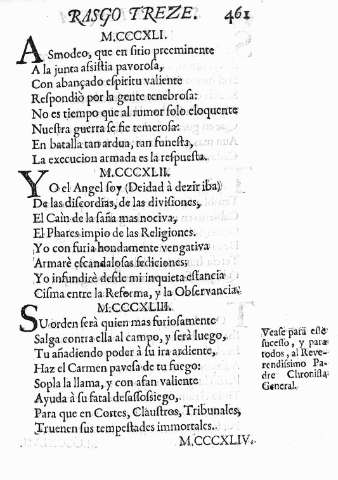 RASGO TREZE. 461
M.CCCXLI.
ASmodeo, que en sitio preeminente
A la junta asistia pavorosa,
Con abançado espiritu valiente
Respondiò por la gente tenebrosa:
No es tiempo que al rumor solo eloquente
Nuestra guerra se fie temerosa:
En batalla tan ardua, tan funesta,
La execucion armada es la respuesta.
M.CCCXLII.
YO el Angel soy (Deidad à dezir iba)
De las discordias, de las divisiones,
El Cain de la saña mas nociva,
El Phares impio de las Religiones.
Yo con furia hondamente vengativa
Armarè escandalosas sediciones;
Yo infundirè desde mi inquieta estancia
Cisma entre la Reforma, y la Observancia.
M.CCCXLIII.
SU orden serà quien mas furiosamente
Salga contra ella al campo, y serà luego,
Tu añadiendo poder à su ira ardiente,
Haz el Carmen pavesa de tu fuego:
Sopla la llama, y con afan valiente
Ayuda à su fatal desassossiego,
Para que en Cortes, Claustros, Tribunales,
Truenen sus tempestades immortales.
M.CCCXLIV.
Vease para este
sucesso, y para
todos, al Reve-
rendissimo Pa-
dre Chronista
General.